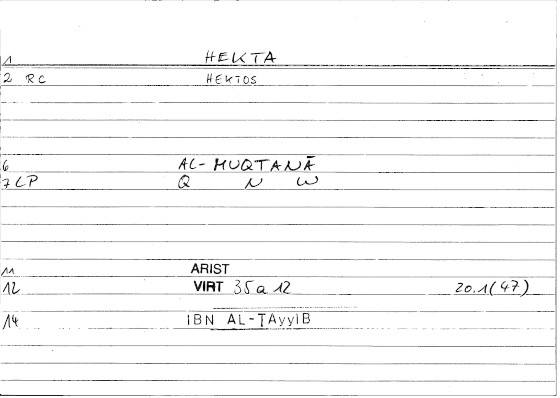 1 HEKTA
2 RC HEKTOS
6 AL-MUQTANĀ
7 LP Q N W
11 ARIST
12 VIRT 35a12 20.1(47)
14 IBN AL-ṬAyyIB